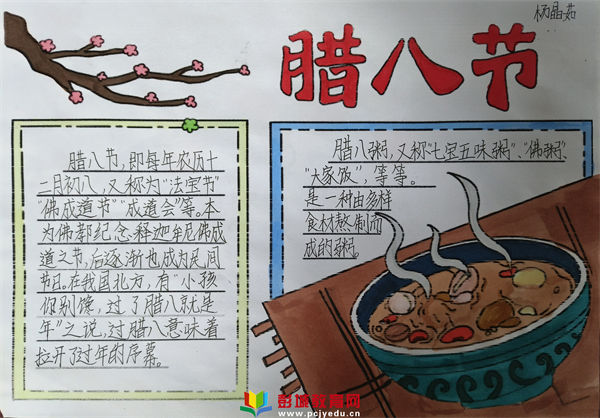 杨晶茹
腊八节
腊八节，即每年农历十
二月初八，又称为“法宝节”
“佛成道节”“成道会”等。本
为佛教纪念释迦牟尼佛成
道之节，后逐渐也成为民间
节日。在我国北方，有“小孩
你别馋，过了腊八就是
年”之说，过腊八意味着
拉开了过年的序幕。
腊八粥，又称“七宝五味粥”、“佛粥”、
“大家饭”，等等。
是一种由多样
食材熬制而
成的粥。
彭城教育网
www.pcjyedu.cn